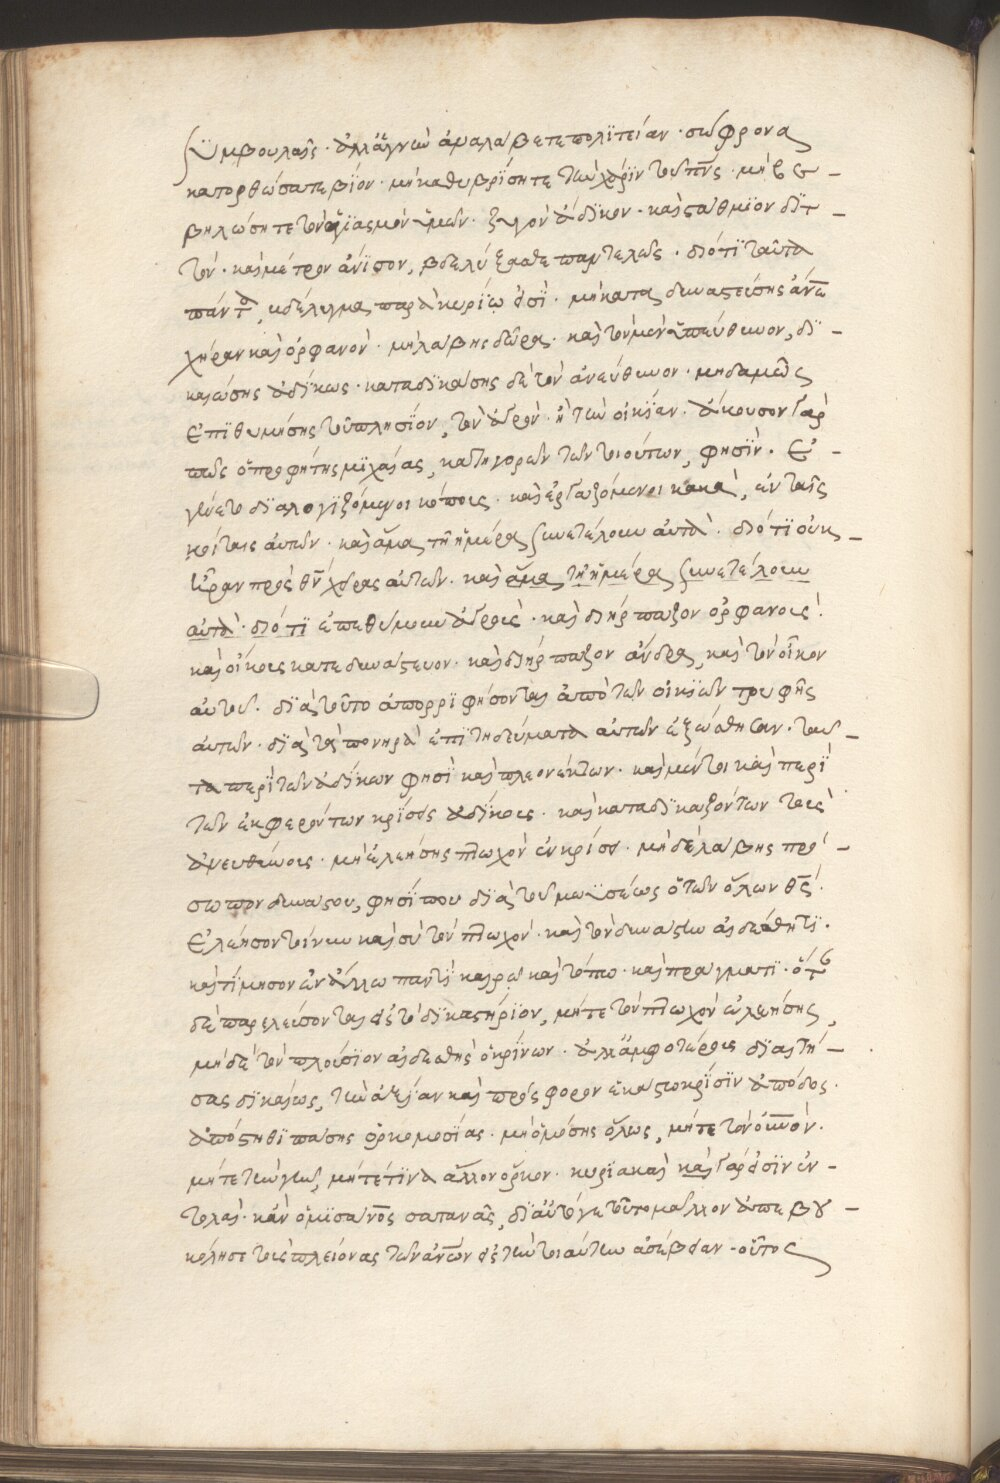 συμβουλαῖς· ἀλλ' ἁγνὴν ἀναλάβετε πολιτείαν· σώφρονα
κατορθώσατε βίον· μὴ καθυβρίσητε τὴν χάριν τοῦ πνς· μὴ βε-
βηλώσητε τὸν ἁγιασμὸν ἡμῶν· ζυγὸν ἄδικον· καὶ σταθμίον διτ-
τόν· καὶ μέτρον ἄνισον, βδελύξασθε παντελῶς· διότι ταῦτα
πάντα, βδέλυγμα παρὰ κυρίῳ εἰσί· μὴ καταδυναστεύσης
χήραν καὶ ὀρφανόν· μὴ λάβης δῶρα· καὶ τὸν μὲν ὑπεύθυνον, δι-
καιώσης ἀδίκως· καταδικάσης δὲ τὸν ἀνεύθυνον· μηδαμῶς
ἐπιθυμήσης τοῦ πλησίον, τὸν ἀγρόν· ἢ τὴν οἰκίαν· ἄκουσον γὰρ
πῶς ὁ προφήτης μιχαίας, κατηγορῶν τῶν τοιούτων, φησίν· ἐ-
γένετο διαλογιζόμενοι κόπους· καὶ ἐργαζόμενοι κακά, ἐν ταῖς
κοίταις αὐτῶν· καὶ ἅμα τῇ ἡμέρα συνετέλουν αὐτά· διότι οὐκ
ἦραν πρὸς θν χεῖρας αὐτῶν· καὶ ἅμα τῇ ἡμέρα συνετέλουν
αὐτά· διότι ἐπεθύμουν ἀγρούς· καὶ διήρπαζον ὀρφανούς·
καὶ οἴκους κατεδυνάστευον· καὶ διήρπαζον ἄνδρα, καὶ τὸν οἶκον
αὐτοῦ· διὰ τοῦτο ἀπορριφήσονται ἀπὸ τῶν οἰκιῶν τρυφῆς
αὐτῶν· διὰ τὰ πονηρὰ ἐπιτηδεύματα αὐτῶν ἐξώσθησαν· ταῦ-
τα περὶ τῶν ἀδίκων φησὶ καὶ πλεονεκτῶν· καὶ μέντοι καὶ περὶ
τῶν ἐκφερόντων κρίσεις ἀδίκους· καὶ καταδικαζόντων τοὺς
ἀνευθύνους· μὴ ἐλεήσης πτωχὸν ἐν κρίσει· μὴ δὲ λάβης πρό-
σωπον δυνάστου, φησί που διὰ τοῦ μωυσέως ὁ τῶν ὅλων θς·
ἐλέησον τοίνυν καὶ σὺ τὸν πτωχόν· καὶ τὸν δυνάστην αἰδέσθητι·
καὶ τίμησον ἐν ἄλλω παντὶ καιρῷ καὶ τόπω· καὶ πράγματι· ὅτε
δὲ παρελεύσονται εἰς τὸ δικαστήριον, μήτε τὸν πτωχὸν ἐλεήσης,
μηδὲ τὸν πλούσιον αἰδεσθῇς ὁ κρίνων· ἀλλ' ἀμφοτέροις διαιτή-
σας δικαίως, τὴν ἀξίαν καὶ πρόσφορον ἑκάστω κρίσιν ἀπόδος·
ἀπόστηθι πάσης ὁρκωμοσίας· μὴ ὀμόσης ὅλως, μήτε τὸν οὐνόν·
μήτε τὴν γῆν, μήτε τινὰ ἄλλον ὅρκον· κυριακαὶ καὶ γάρ εἰσιν ἐν-
τολαί· κἂν ὁ μισάνος σατανᾶς, δι' αὐτό γε τοῦτο μᾶλλον ἀπεβου-
κόλησε τοὺς πλείονας τῶν ἀνων εἰς τὴν τοιαύτην ἀσέβειαν· οὗτος